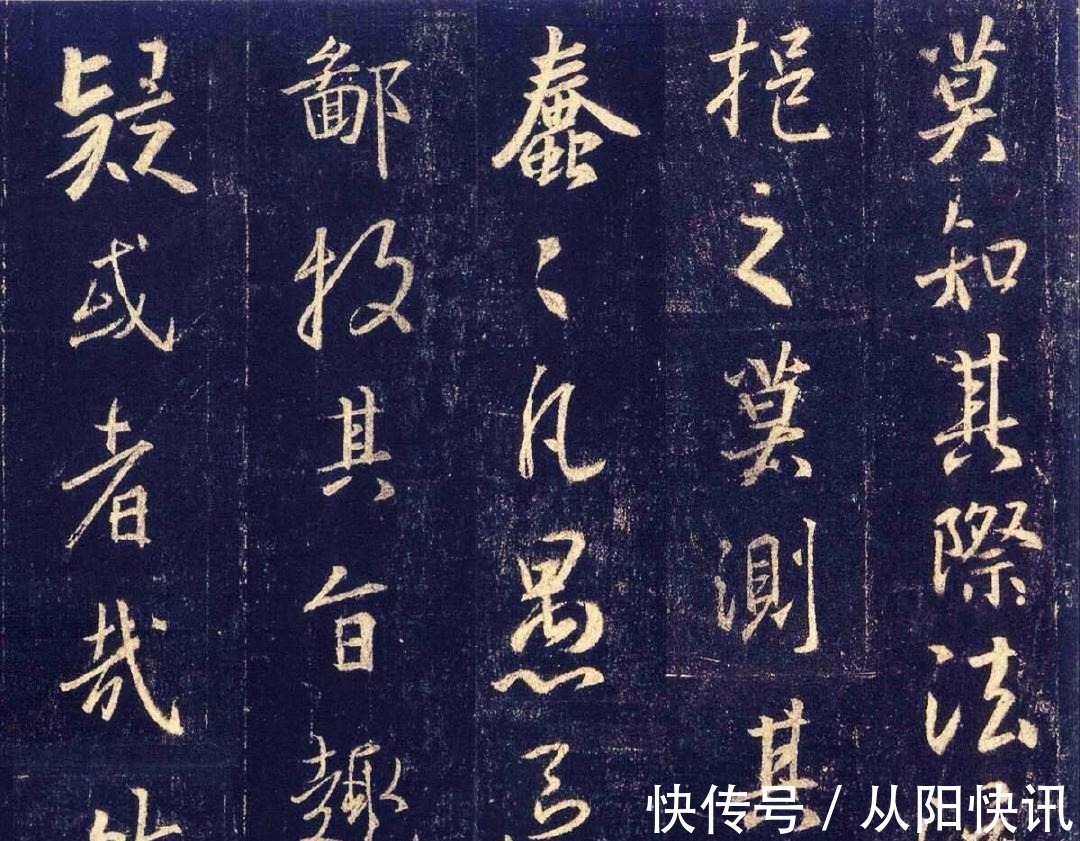 莫知其際法
挹之莫測其
蠢〻凡愚
鄙投其旨趣
疑或者哉
快传号 / 从阳快讯